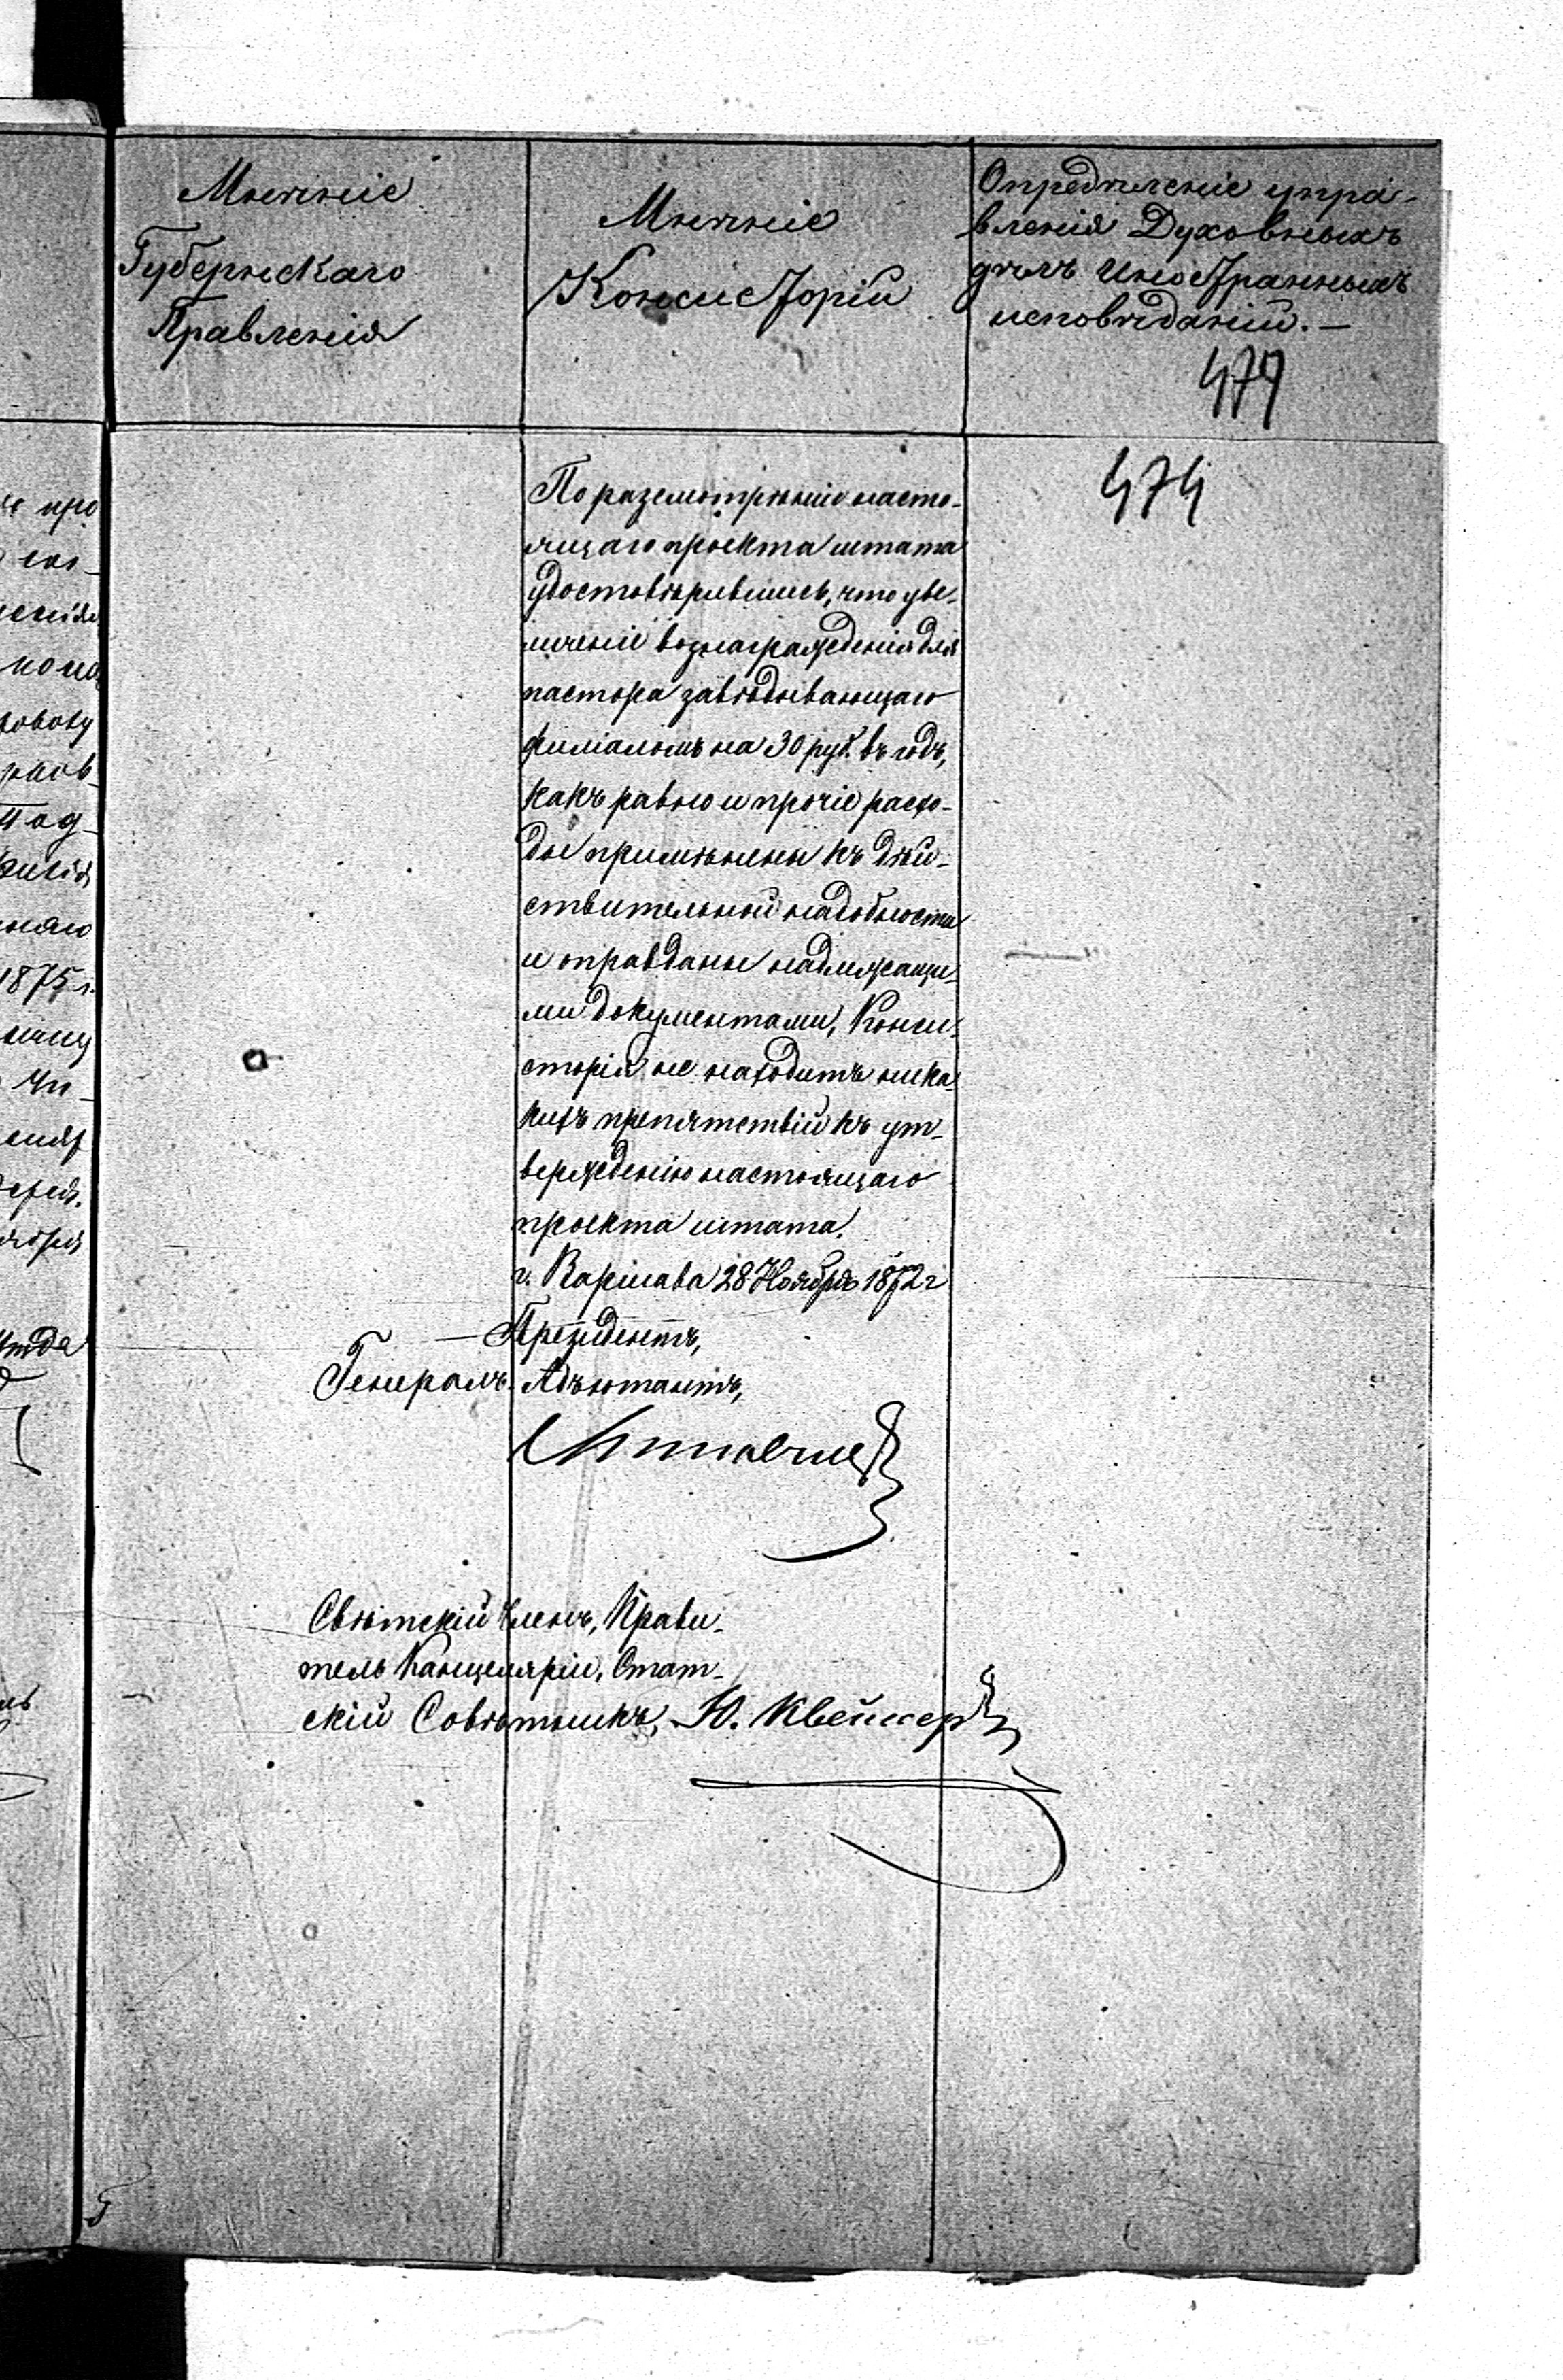 Мнѣніе
Губернскаго
Правленія
Мнѣніе
Консисторіи
Опредѣленіе упра-
вленія Духовныхъ
дѣлъ Иностранныхъ
исповѣданій.—
477
474
По разсмотрѣніи насто-
ящаго проекта штата
удостовѣрившись, что уве-
личеніе вознагражденія для
пастора завѣдывающаго
филіаломъ на 30 руб. въ годъ,
какъ равно и прочіе расхо-
ды примѣнены къ дѣй-
ствительной надобности
и оправданы надлежащи-
ми документами, Конси-
сторія не находитъ ника-
кихъ препятствій къ ут-
вержденію настоящаго
проекта штата.
г. Варшава 28 Ноября 1872 г
Президентъ,
Генералъ-Адъютантъ,
Свѣтскій Членъ, Прави-
тель Канцеляріи, Стат-
скій Совѣтникъ, Ю.
про
1875 г.